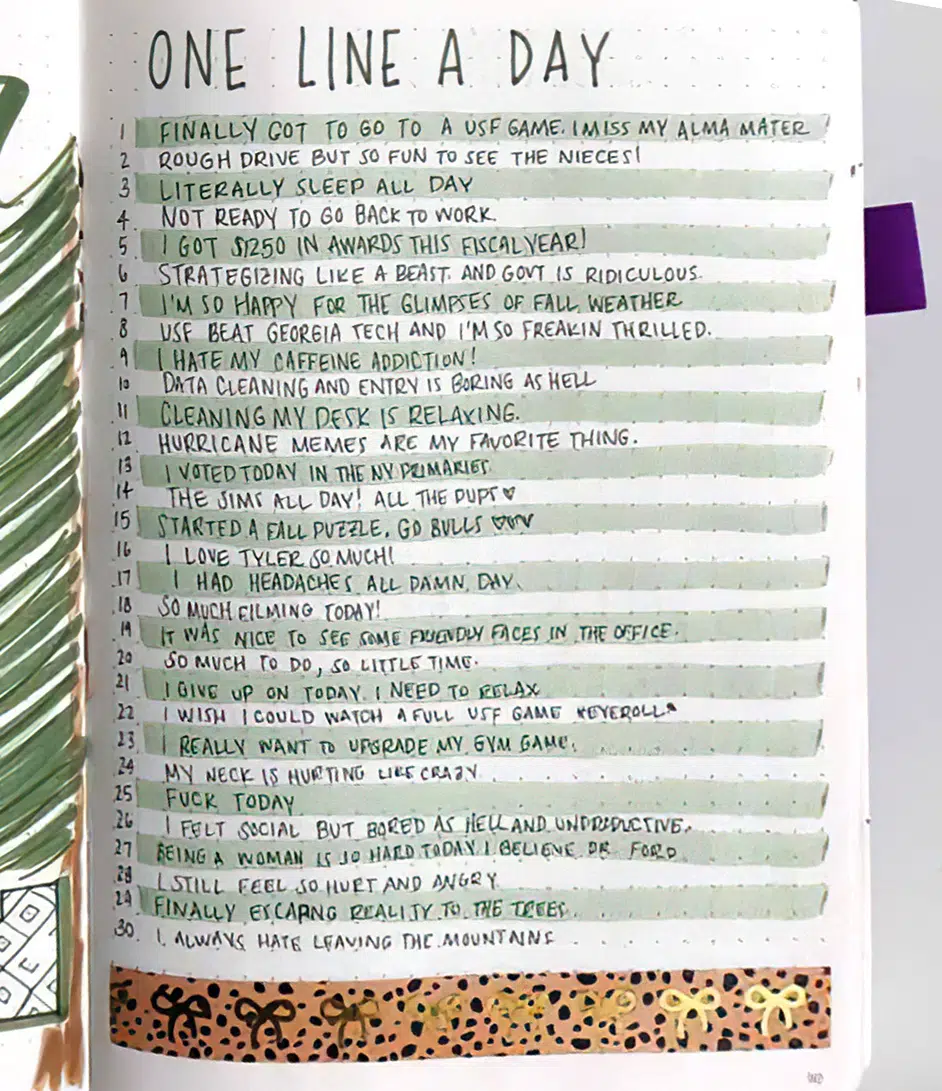 ONE LINE A DAY
1 FINALLY GOT TO GO TO A USF GAME. I MISS MY ALMA MATER
2 ROUGH DRIVE BUT SO FUN TO SEE THE NIECES!
3 LITERALLY SLEEP ALL DAY
4 NOT READY TO GO BACK TO WORK.
5 I GOT $1250 IN AWARDS THIS FISCAL YEAR!
6 STRATEGIZING LIKE A BEAST. AND GOVT IS RIDICULOUS.
7 I'M SO HAPPY FOR THE GLIMPSES OF FALL WEATHER
8 USF BEAT GEORGIA TECH AND I'M SO FREAKIN THRILLED.
9 I HATE MY CAFFEINE ADDICTION!
10 DATA CLEANING AND ENTRY IS BORING AS HELL
11 CLEANING MY DESK IS RELAXING.
12 HURRICANE MEMES ARE MY FAVORITE THING.
13 I VOTED TODAY IN THE NY PRIMARIES
14 THE SIMS ALL DAY! ALL THE PUPS ♥
15 STARTED A FALL PUZZLE. GO BULLS ♥♥♥
16 I LOVE TYLER SO MUCH!
17 I HAD HEADACHES ALL DAMN DAY.
18 SO MUCH FILMING TODAY!
19 IT WAS NICE TO SEE SOME FRIENDLY FACES IN THE OFFICE.
20 SO MUCH TO DO, SO LITTLE TIME.
21 I GIVE UP ON TODAY. I NEED TO RELAX
22 I WISH I COULD WATCH A FULL USF GAME *EYEROLL*
23 I REALLY WANT TO UPGRADE MY GYM GAME.
24 MY NECK IS HURTING LIKE CRAZY
25 FUCK TODAY
26 I FELT SOCIAL BUT BORED AS HELL AND UNPRODUCTIVE.
27 BEING A WOMAN IS SO HARD TODAY. I BELIEVE DR. FORD
28 I STILL FEEL SO HURT AND ANGRY
29 FINALLY ESCAPNG REALITY TO THE TREES.
30. I ALWAYS HATE LEAVING THE MOUNTAINS